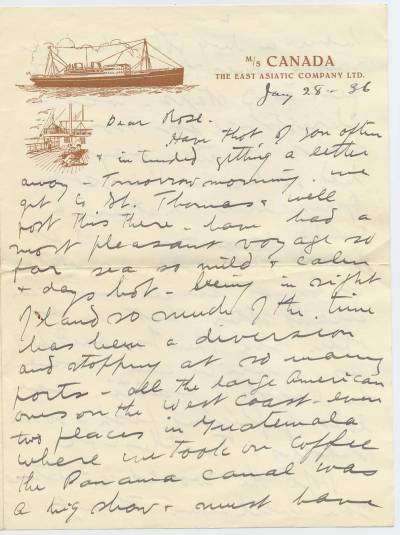 M/S CANADA
THE EAST ASIATIC COMPANY LTD.
Jany 28 - 36
Dear Rose.
Have thot of you often
& intended getting a letter
away - Tomorrow morning we
get to St. Thomas & will
post this there - have had a
most pleasant voyage so
far sea so mild & calm
& days hot - being in sight
of land so much of the time
has been a diversion
and stopping at so many
ports - all the large American
ones on the West Coast - even
two places in Guatemala
where we took on coffee
the Panama Canal was
a big show & must have